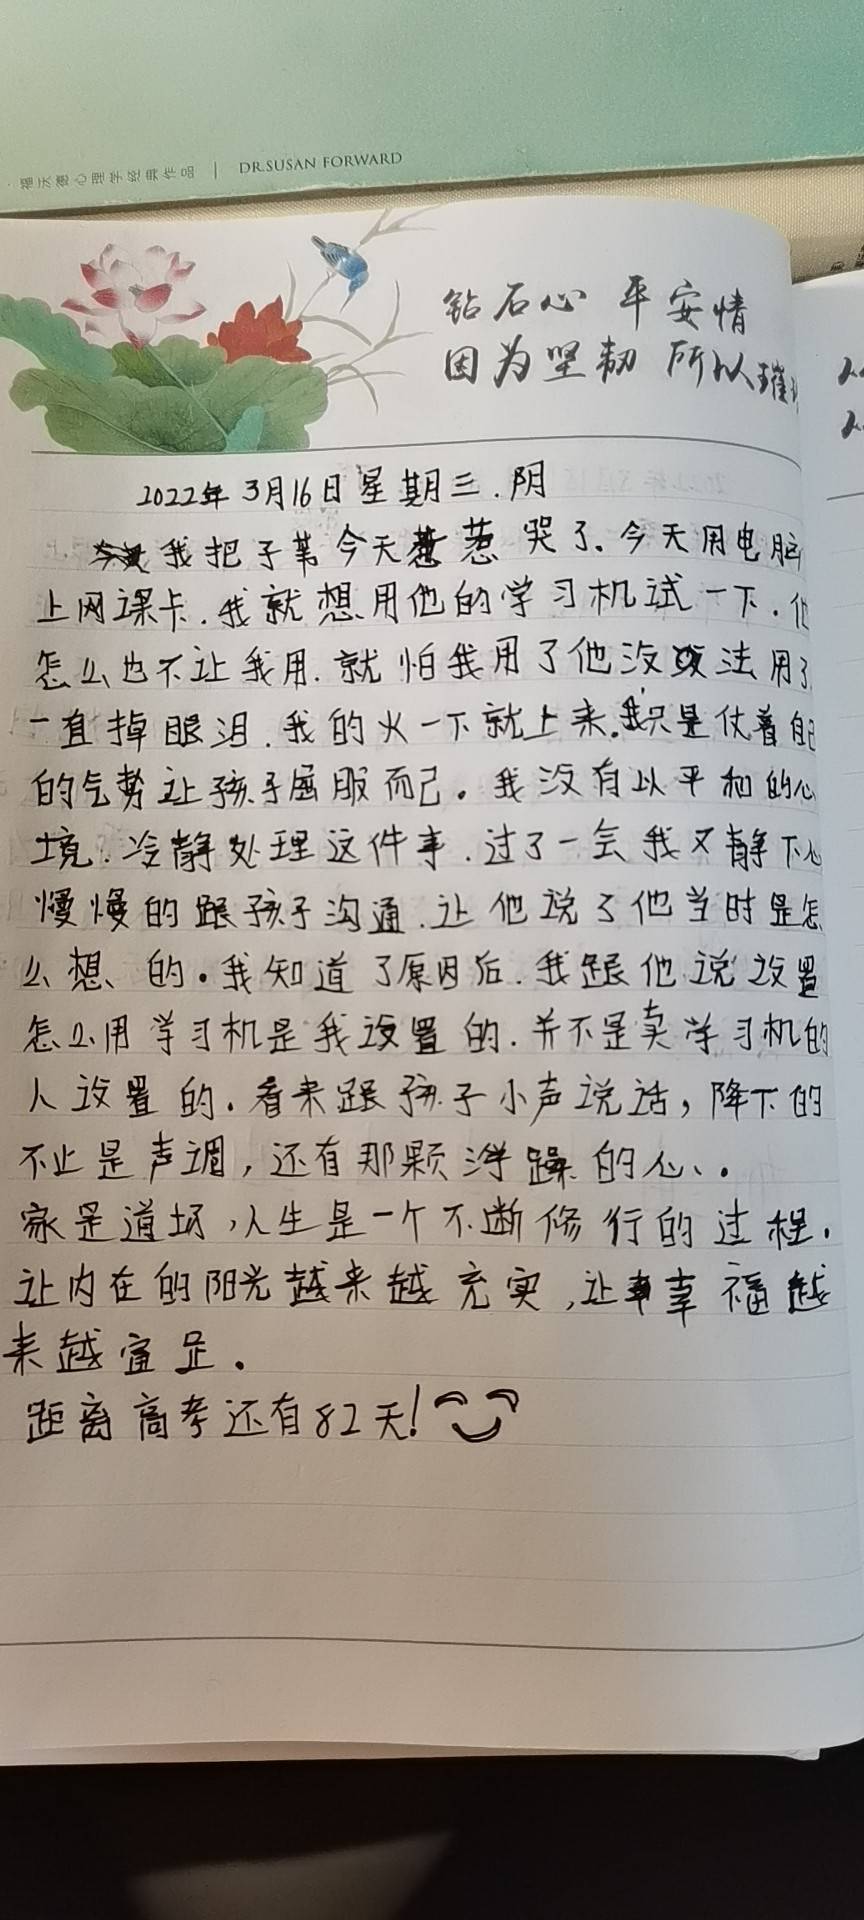 福沃德心理学经典作品 | DR.SUSAN FORWARD
钻石心 平安情
因为坚韧 所以璀
2022年3月16日星期三.阴
我把子苇今天惹哭了.今天用电脑
上网课卡.我就想用他的学习机试一下.他
怎么也不让我用.就怕我用了他没法用了
一直掉眼泪.我的火一下就上来.我只是仗着自己
的气势让孩子屈服而已。我没有以平和的心
境.冷静处理这件事.过了一会我又静下心
慢慢的跟孩子沟通.让他说了他当时是怎
么想的。我知道了原因后.我跟他说设置
怎么用学习机是我设置的.并不是卖学习机的
人设置的.看来跟孩子小声说话，降下的
不止是声调，还有那颗浮躁的心、。
家是道场，人生是一个不断修行的过程.
让内在的阳光越来越充实,让幸福越
来越富足.
距离高考还有82天!